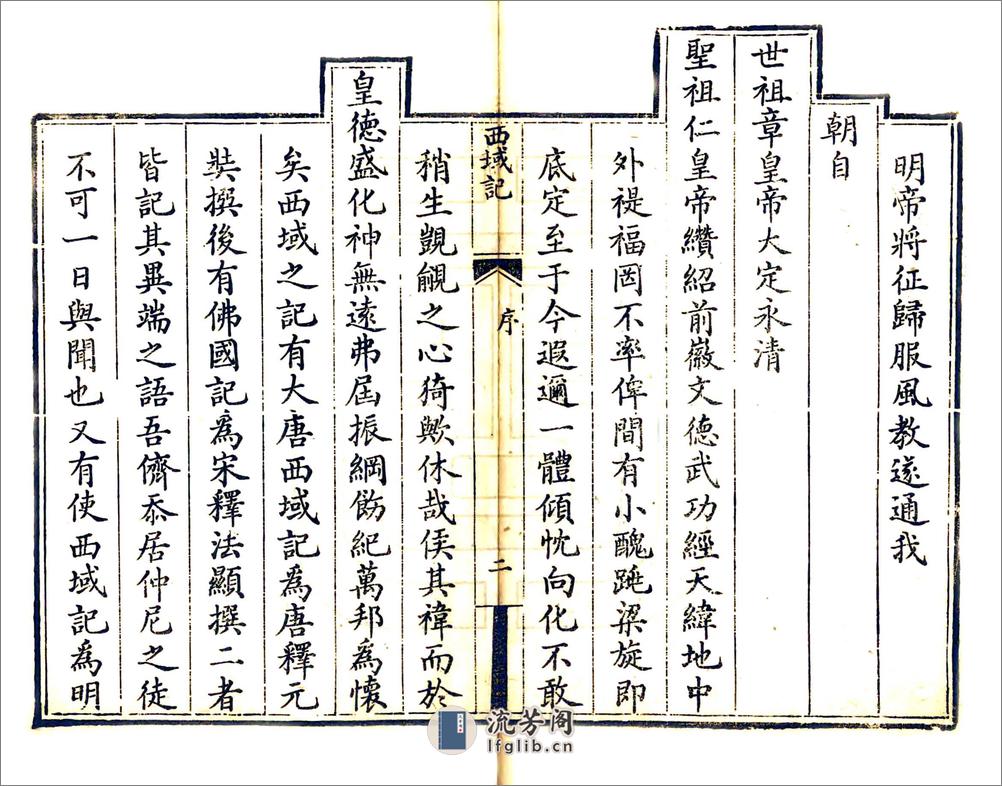 明帝將征歸服風教遂通我
朝自
世祖章皇帝大定永清
聖祖仁皇帝纘紹前徽文德武功經天緯地中
外禔福罔不率俾間有小醜跳梁旋即
底定至于今遐邇一體傾忱向化不敢
西域記
序
二
稍生覬覦之心猗歟休哉俟其禕而於
皇德盛化神無遠弗屆振綱飭紀萬邦爲懷
矣西域之記有大唐西域記爲唐釋元
奘撰後有佛國記爲宋釋法顯撰二者
皆記其異端之語吾儕忝居仲尼之徒
不可一日與聞也又有使西域記爲明
流芳阁
lfglib.cn